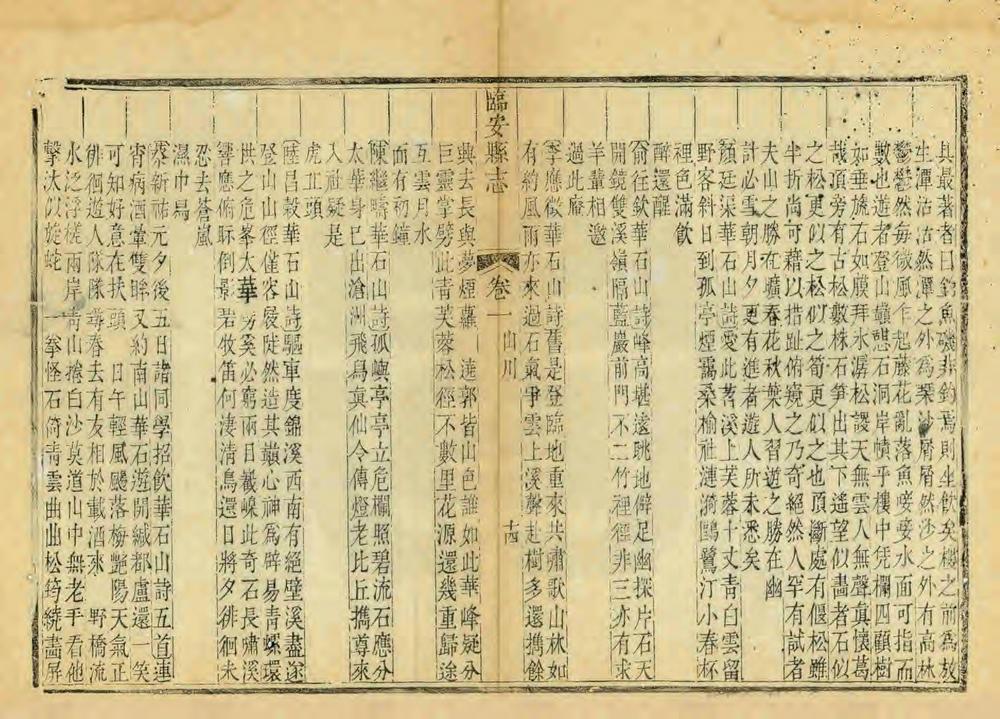 其最著者曰釣魚磯非釣焉則坐飲矣樓之前爲放
生潭沽沽然潭之外爲栗沙屑屑然沙之外有高林
鬱鬱然每微風乍起藤花亂落魚唼唼水面可指而
數也遊者登山巔憇石洞岸幘乎樓中凭欄四顧樹
如垂旒石如膜拜水潺松謖天無雲人無聲眞懷葛
哉頂旁有古松數株石笋出其下遙望似畵者石似
之松更似之松似之筍更似之也頂斷處有偃松雖
半折尚可藉以措趾俯窺之乃奇絕然人罕有試者
夫山之勝在曠春花秋葉人習遊之勝在幽
計必雪朝月夕更有進者遊人所未悉矣
顏廷渠華石山詩愛此苕溪上芙蓉十丈靑白雲留
野客斜日到孤亭煙靄桑榆社漣漪鷗鷺汀小春杯
裡色滿飲
醉還醒
俞往欽華石山詩峰高堪遠眺地僻足幽探片石天
開鏡雙溪嶺隔藍嚴前門不二竹裡徑非三亦有求
羊輩相邀
過此庵
李應徵華石山詩舊是登臨地重來共肅歌山林如
有約風雨亦來過石氣爭雲上溪聲赴樹多還攜餘
興去長與夢煙蘿
達郭皆山色誰如此華峰疑分
巨靈掌劈此靑芙蓉松徑不數里花源還幾重歸途
五雲月水
面有初鐘
陳繼疇華石山詩孤嶼亭亭立危欄照碧流石應分
太華身已出滄洲飛舄眞仙令傳燈老比丘攜尊來
入社疑是
虎丘頭
陸昌穀華石山詩驅車度錦溪西南有絕壁溪盡遂
登山山徑僅容屐陡然造其巔心神爲辟易靑螺環
拱之危峯太華勞奚必窮兩目巀嵲此奇石長嘯溪
響應俯眎倒影岩牧笛何淒清鳥還日將夕徘徊未
忍去蒼嵐
濕巾舄
蔡新祐元夕後五日諸同學招飲華石山詩五首連
宵病酒暈雙眸又約南山華石遊開緘都盧還一笑
可知好意在扶頭
日午輕風颺落梅艷陽天氣正
徘徊遊人隊隊尋春去有友相於載酒來
野橋流
水泛浮槎兩岸靑山捲白沙莫道山中無老手看他
擊汰似旋蛇
一拳怪石倚靑雲曲曲松筠繞畵屏
臨安縣志
卷一
山川
十四